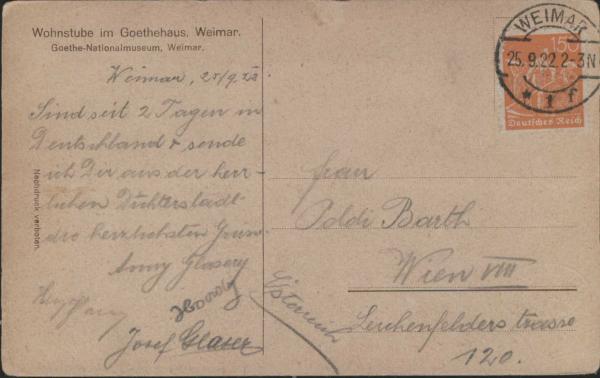 Wohnstube im Goethehaus, Weimar.
Goethe-Nationalmuseum, Weimar.
Weimar, 25/9.22
Sind seit 2 Tagen in
Deutschland & sende
ich Dir aus der herr-
lichen Dichterstadt
die herzlichsten Grüsse
Anny
Josef Glaser
Nachdruck verboten.
WEIMAR
25.9.22.2-3N
* 1 f
150
Deutsches Reich
Frau
Poldi Barth
Wien VIII
Lerchenfelderstrasse
120.
Österreich